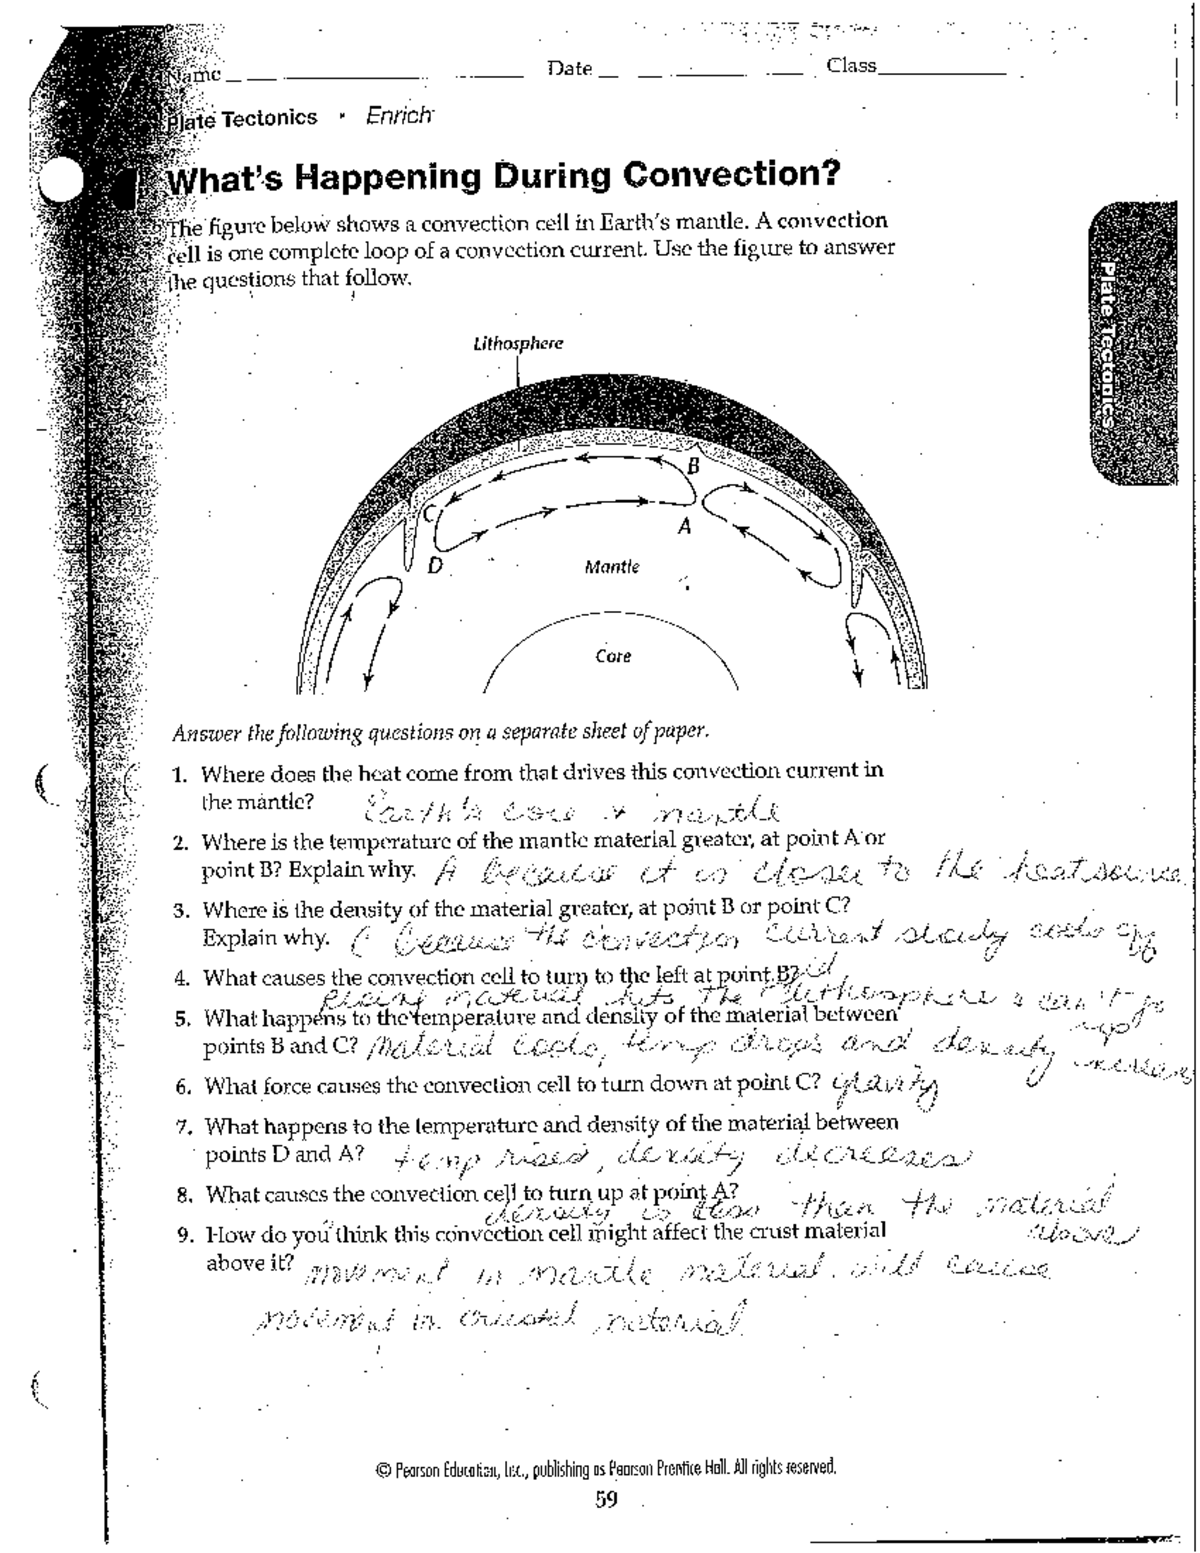 Name Date Class
Plate Tectonics · Enrich
What's Happening During Convection?
The figure below shows a convection cell in Earth's mantle. A convection
cell is one complete loop of a convection current. Use the figure to answer
the questions that follow.
Plate Tectonics
Lithosphere
B
C
A
D
Mantle
Core
Answer the following questions on a separate sheet of paper.
1. Where does the heat come from that drives this convection current in
the mantle? Earth's core & mantle
2. Where is the temperature of the mantle material greater, at point A or
point B? Explain why. A because it is closer to the heat source
3. Where is the density of the material greater, at point B or point C?
Explain why. C because the convection current slowly cools off
4. What causes the convection cell to turn to the left at point B?
rising material hits the lithosphere & can't go
up
5. What happens to the temperature and density of the material between
points B and C? Material cools, temp drops and density increases
6. What force causes the convection cell to turn down at point C? gravity
7. What happens to the temperature and density of the material between
points D and A? temp rises, density decreases
8. What causes the convection cell to turn up at point A?
density is less than the material
above
9. How do you think this convection cell might affect the crust material
above it? movement in mantle material will cause
movement in crustal material
© Pearson Education, Inc., publishing as Pearson Prentice Hall. All rights reserved.
59